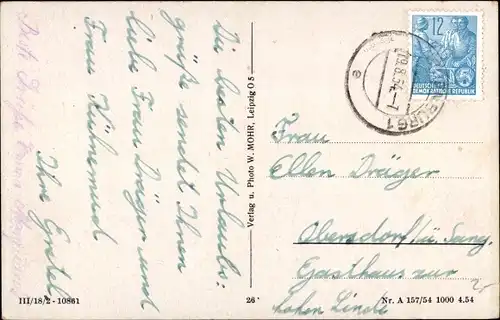 Die besten Urlaubs-
grüße sendet Ihnen
liebe Frau Dräger und
Frau Kühnemund
Ihre Gretel
Beste Grüße
Verlag u. Photo W. MOHR, Leipzig O 5
12
DEUTSCHE
DEMOKRATISCHE REPUBLIK
19.8.54
BURG 1
e
Frau
Ellen Dräger
Obersdorf/ü. Sang.
Gasthaus zur
hohen Linde
III/18/2 - 10861
26
Nr. A 157/54 1000 4.54